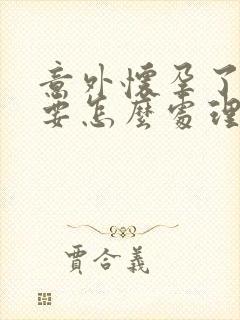 意外懷孕了
要怎麼處理
賈合義